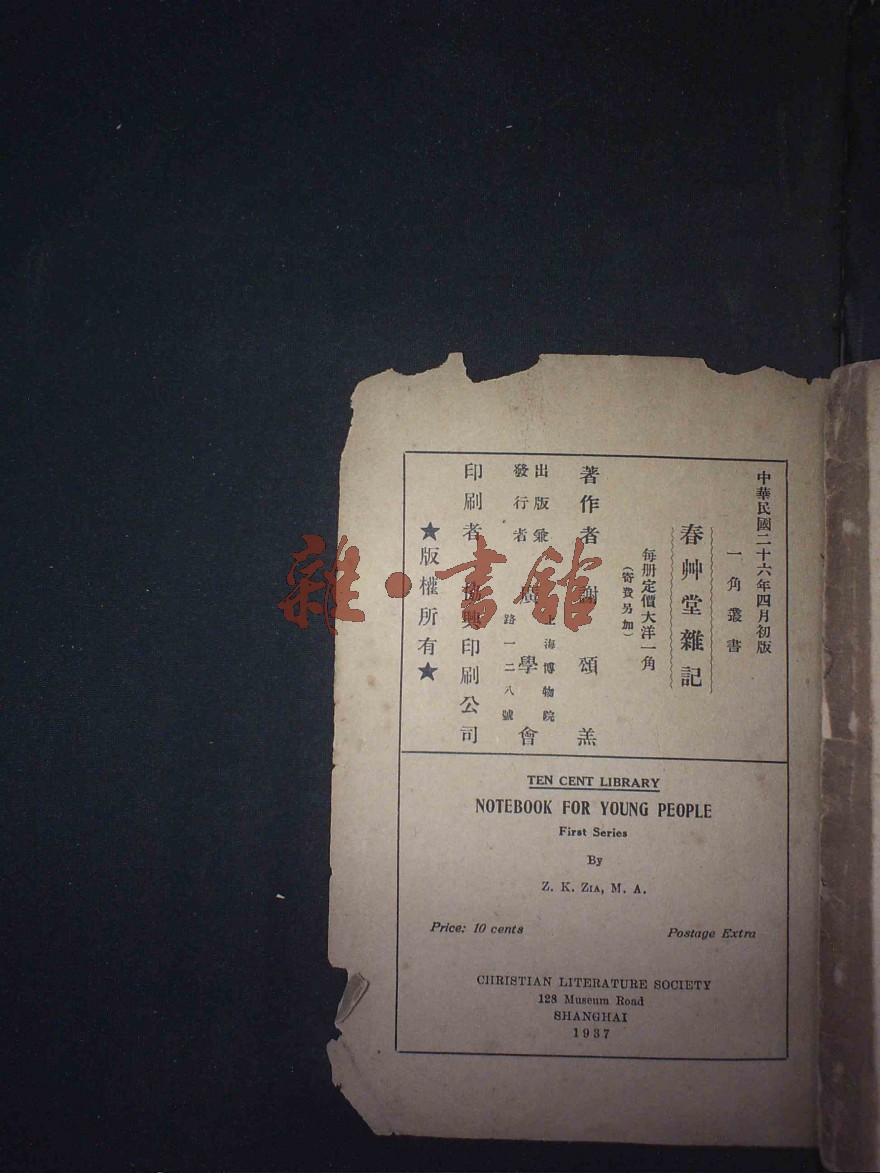 中華民國二十六年四月初版
一角叢書
春艸堂雜記
每册定價大洋一角
(寄費另加)
著作者 謝頌羔
出版兼
發行者
上海博物院
路一二八號
廣學會
印刷者 協興印刷公司
★版權所有★
雜·書館
TEN CENT LIBRARY
NOTEBOOK FOR YOUNG PEOPLE
First Series
By
Z. K. ZIA, M. A.
Price: 10 cents Postage Extra
CHRISTIAN LITERATURE SOCIETY
128 Museum Road
SHANGHAI
1937